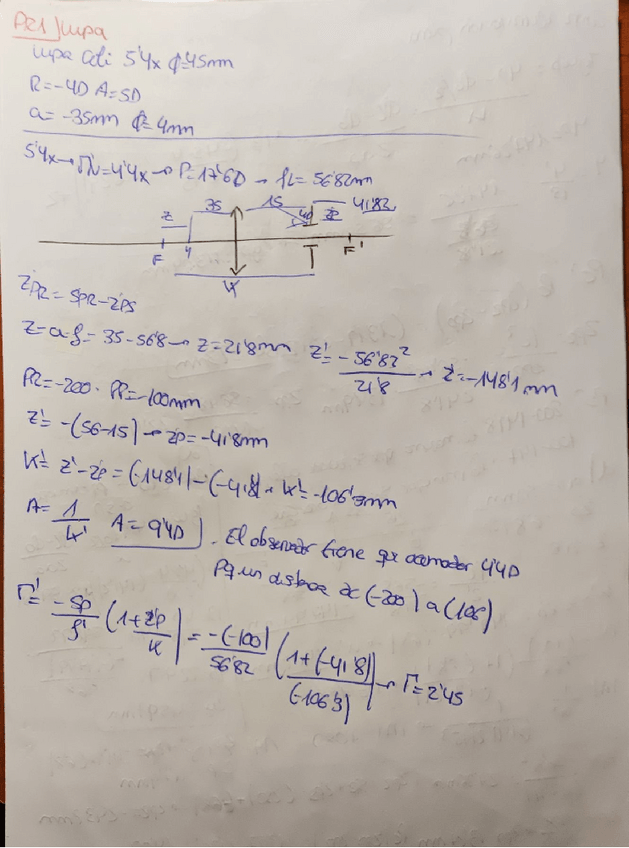 PC1) lupa
lupa Coti 5'4x ϕ=45mm
R=-4D A=5D
a=-35mm ϕ=4mm
5'4x→ΠN=4'4x→P=17'6D→fL=56'82mm
z 35 15 41'82
4 40 zp
F T F'
K'
ZPR = SPR-ZPS
Z=a-f=35-56'8→z=21'8mm z'= -56'82² / 21'8 → z'=-148'1mm
PR=-200. PP=-100mm
z'= -(56-15)→zp=-41'8mm
K'= z'-zp=(-148'1)-(-41'8) = K'=-106'3mm
A= 1 / K' A=9'4D . El observador tiene que acomodar 4'4D
Pq un dista de (-200) a (106)
Γ'= -Sp / f' (1+zp / K') = -(-100) / 56'82 (1+(-41'8) / (-106'3)) → Γ=2'45